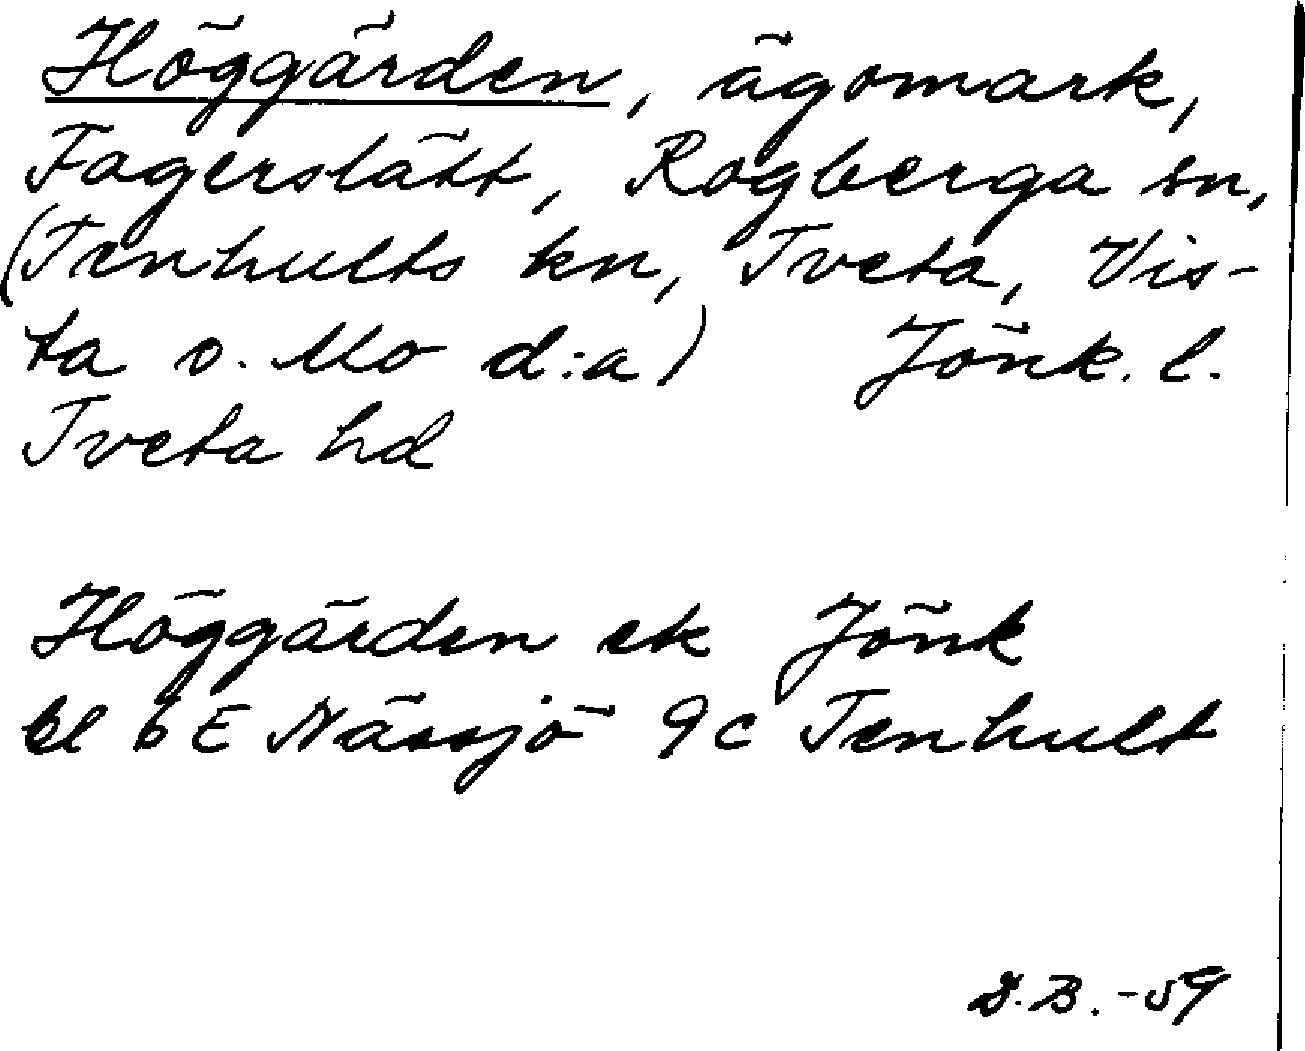 Höggärden, ägomark,
Fagerslätt, Rogberga sn,
(Tenhults kn, Tveta, Vis-
ta o. Mo d:a) Jönk. l.
Tveta hd
Höggärden ek Jönk
bl 6 E Nässjö 9c Tenhult
D.B. -59